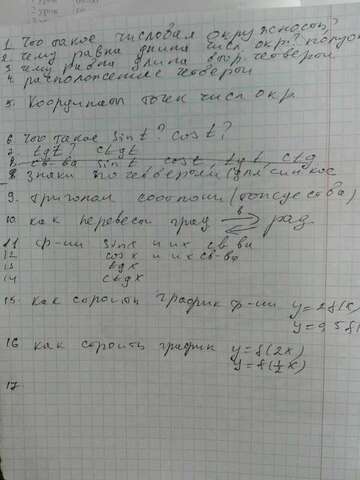 1. Что такое числовая окружность?
2. чему равна длина числ. окр?
3. чему равна длина четверти
4. расположение четвертей
5. Координаты точек числ окр
6. Что такое sin t? cos t?
7. tg t? ctg t
8. св-ва sin t cos t, tg t, ctg
8. Знаки по четвертям (для син кос
9. Тригоном соотнош (тождества)
10. как перевести град в рад.
11 ф-ии sin x и их св-ва
12 cos x и их св-ва
13 tg x
14 ctg x
15. как строить график ф-ии y = 2f(x)
y = 0,5f(
16 как строить график y = f(2x)
y = f(½x)
17